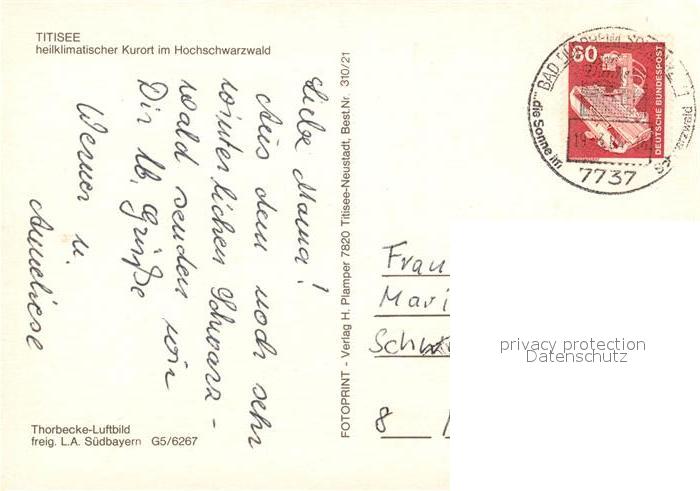 TITISEE
heilklimatischer Kurort im Hochschwarzwald
Liebe Mama!
Aus dem noch sehr
winterlichen Schwarz-
wald senden wir
Dir lb. Grüße
Werner u.
Anneliese
Thorbecke-Luftbild
freig. L.A. Südbayern G5/6267
FOTOPRINT - Verlag H. Plamper 7820 Titisee-Neustadt, Best.Nr. 310/21
60
DEUTSCHE BUNDESPOST
BAD
...die Sonne im
Schwarzwald
7737
Frau
Mari
Sch
8
privacy protection
Datenschutz